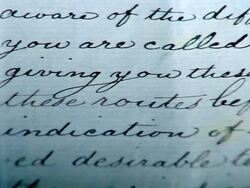 aware of the dif
you are called
giving you these
these routes bef
indication of
ed desirable t